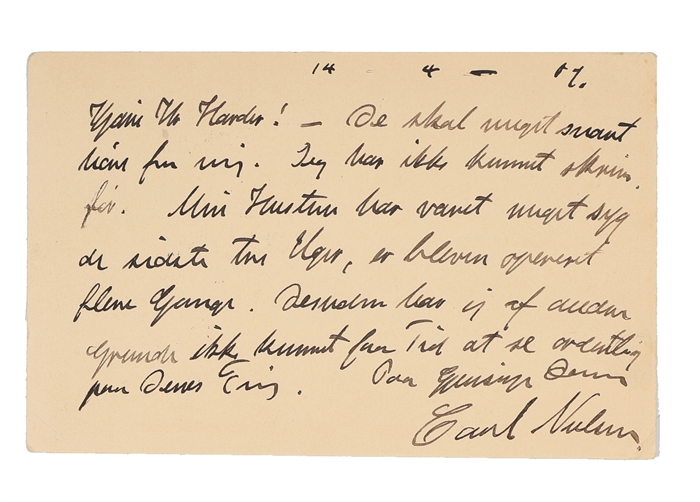 14 - 4 - 07.
Kjære Hr Harder! – De skal meget snart
høre fra mig. Jeg har ikke kunnet skrive
før. Min Hustru har været meget syg
de sidste tre Uger, er bleven opereret
flere Gange. Desuden har jeg af anden
Grunde ikke kunnet faa Tid at se ordentlig
paa Deres Ting. Paa Gensyn Deres
Carl Nielsen.